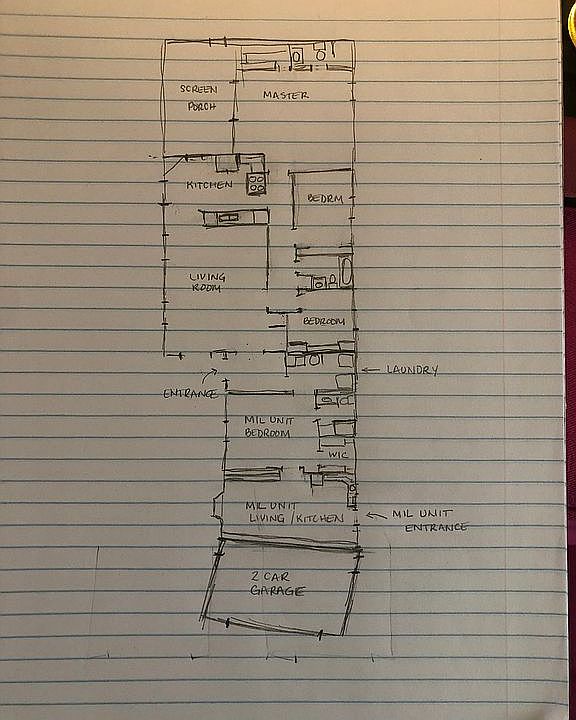 SCREEN
PORCH
MASTER
KITCHEN
BEDRM
LIVING
ROOM
BEDROOM
LAUNDRY
ENTRANCE
MIL UNIT
BEDROOM
WIC
MIL UNIT
LIVING/KITCHEN
MIL UNIT
ENTRANCE
2 CAR
GARAGE